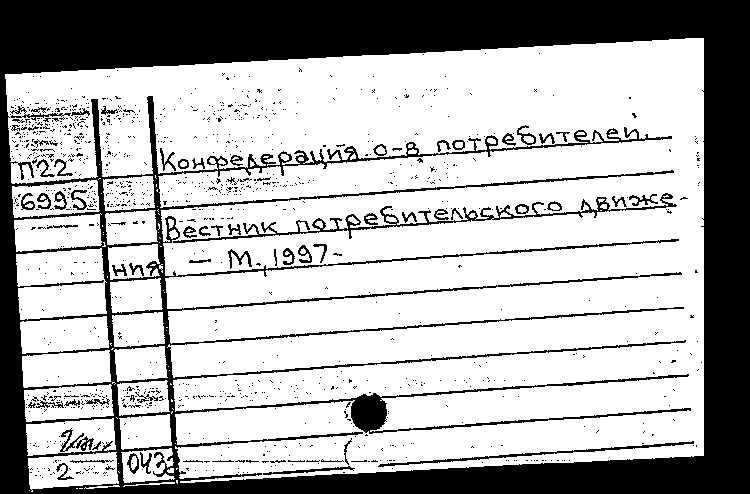 П22 Конфедерация о-в потребителей.
6995
Вестник потребительского движе-
ния. — М., 1997-
2